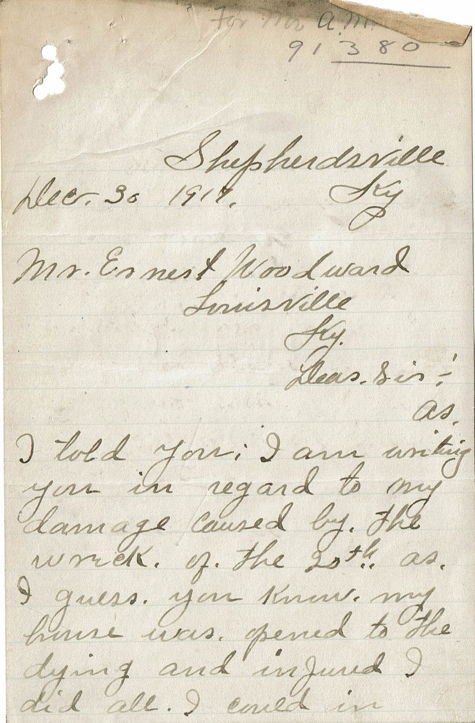 For Mr A.M.
91380
Shepherdsville
Ky
Dec. 30 1917.
Mr. Ernest Woodward
Louisville
Ky.
Dear. Sir:
as.
I told you; I am writing
you in regard to my
damage caused by. the
wreck. of. the 20th. as.
I guess. you know. my
house was. opened to the
dying and injured I
did all. I could in